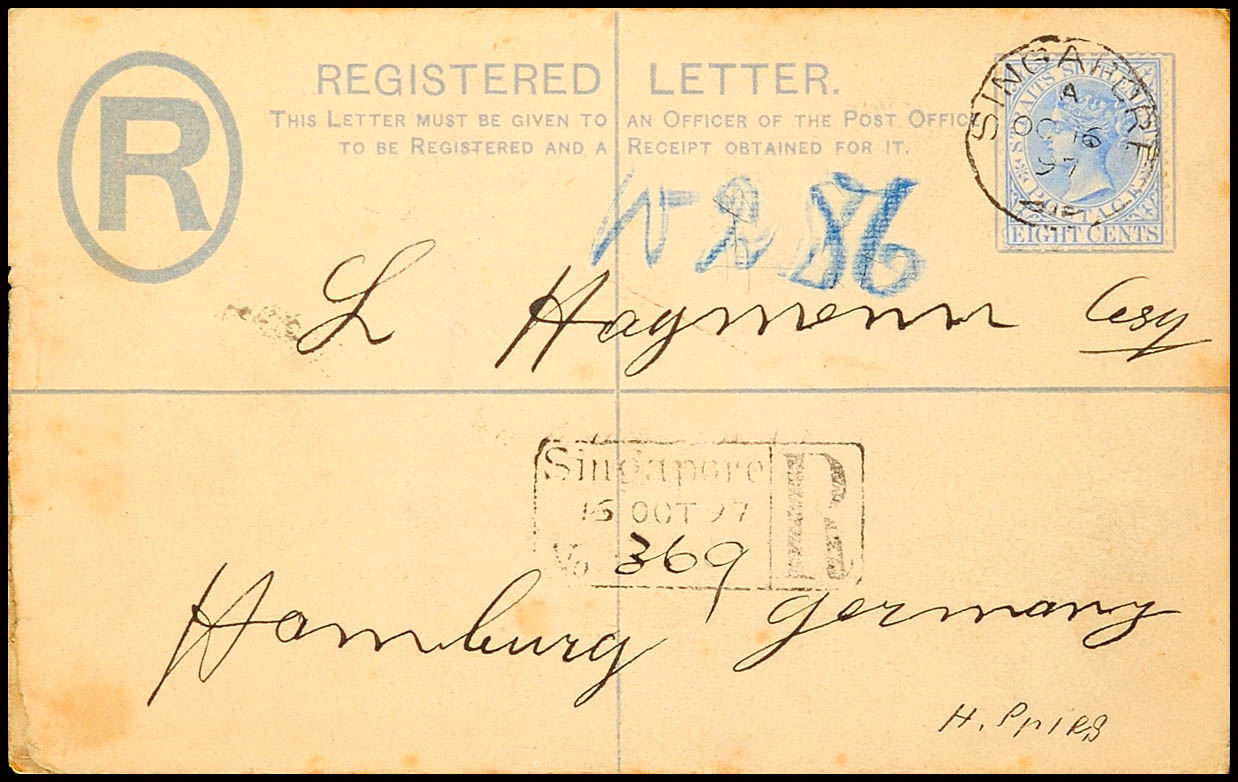 R
REGISTERED LETTER.
THIS LETTER MUST BE GIVEN TO AN OFFICER OF THE POST OFFICE
TO BE REGISTERED AND A RECEIPT OBTAINED FOR IT.
SINGAPORE
A
OC 16
97
STRAITS SETTLEMENTS
POSTAGE
EIGHT CENTS
L Haymann Esq
Singapore
16 OCT 97
No 369
R
Hamburg Germany